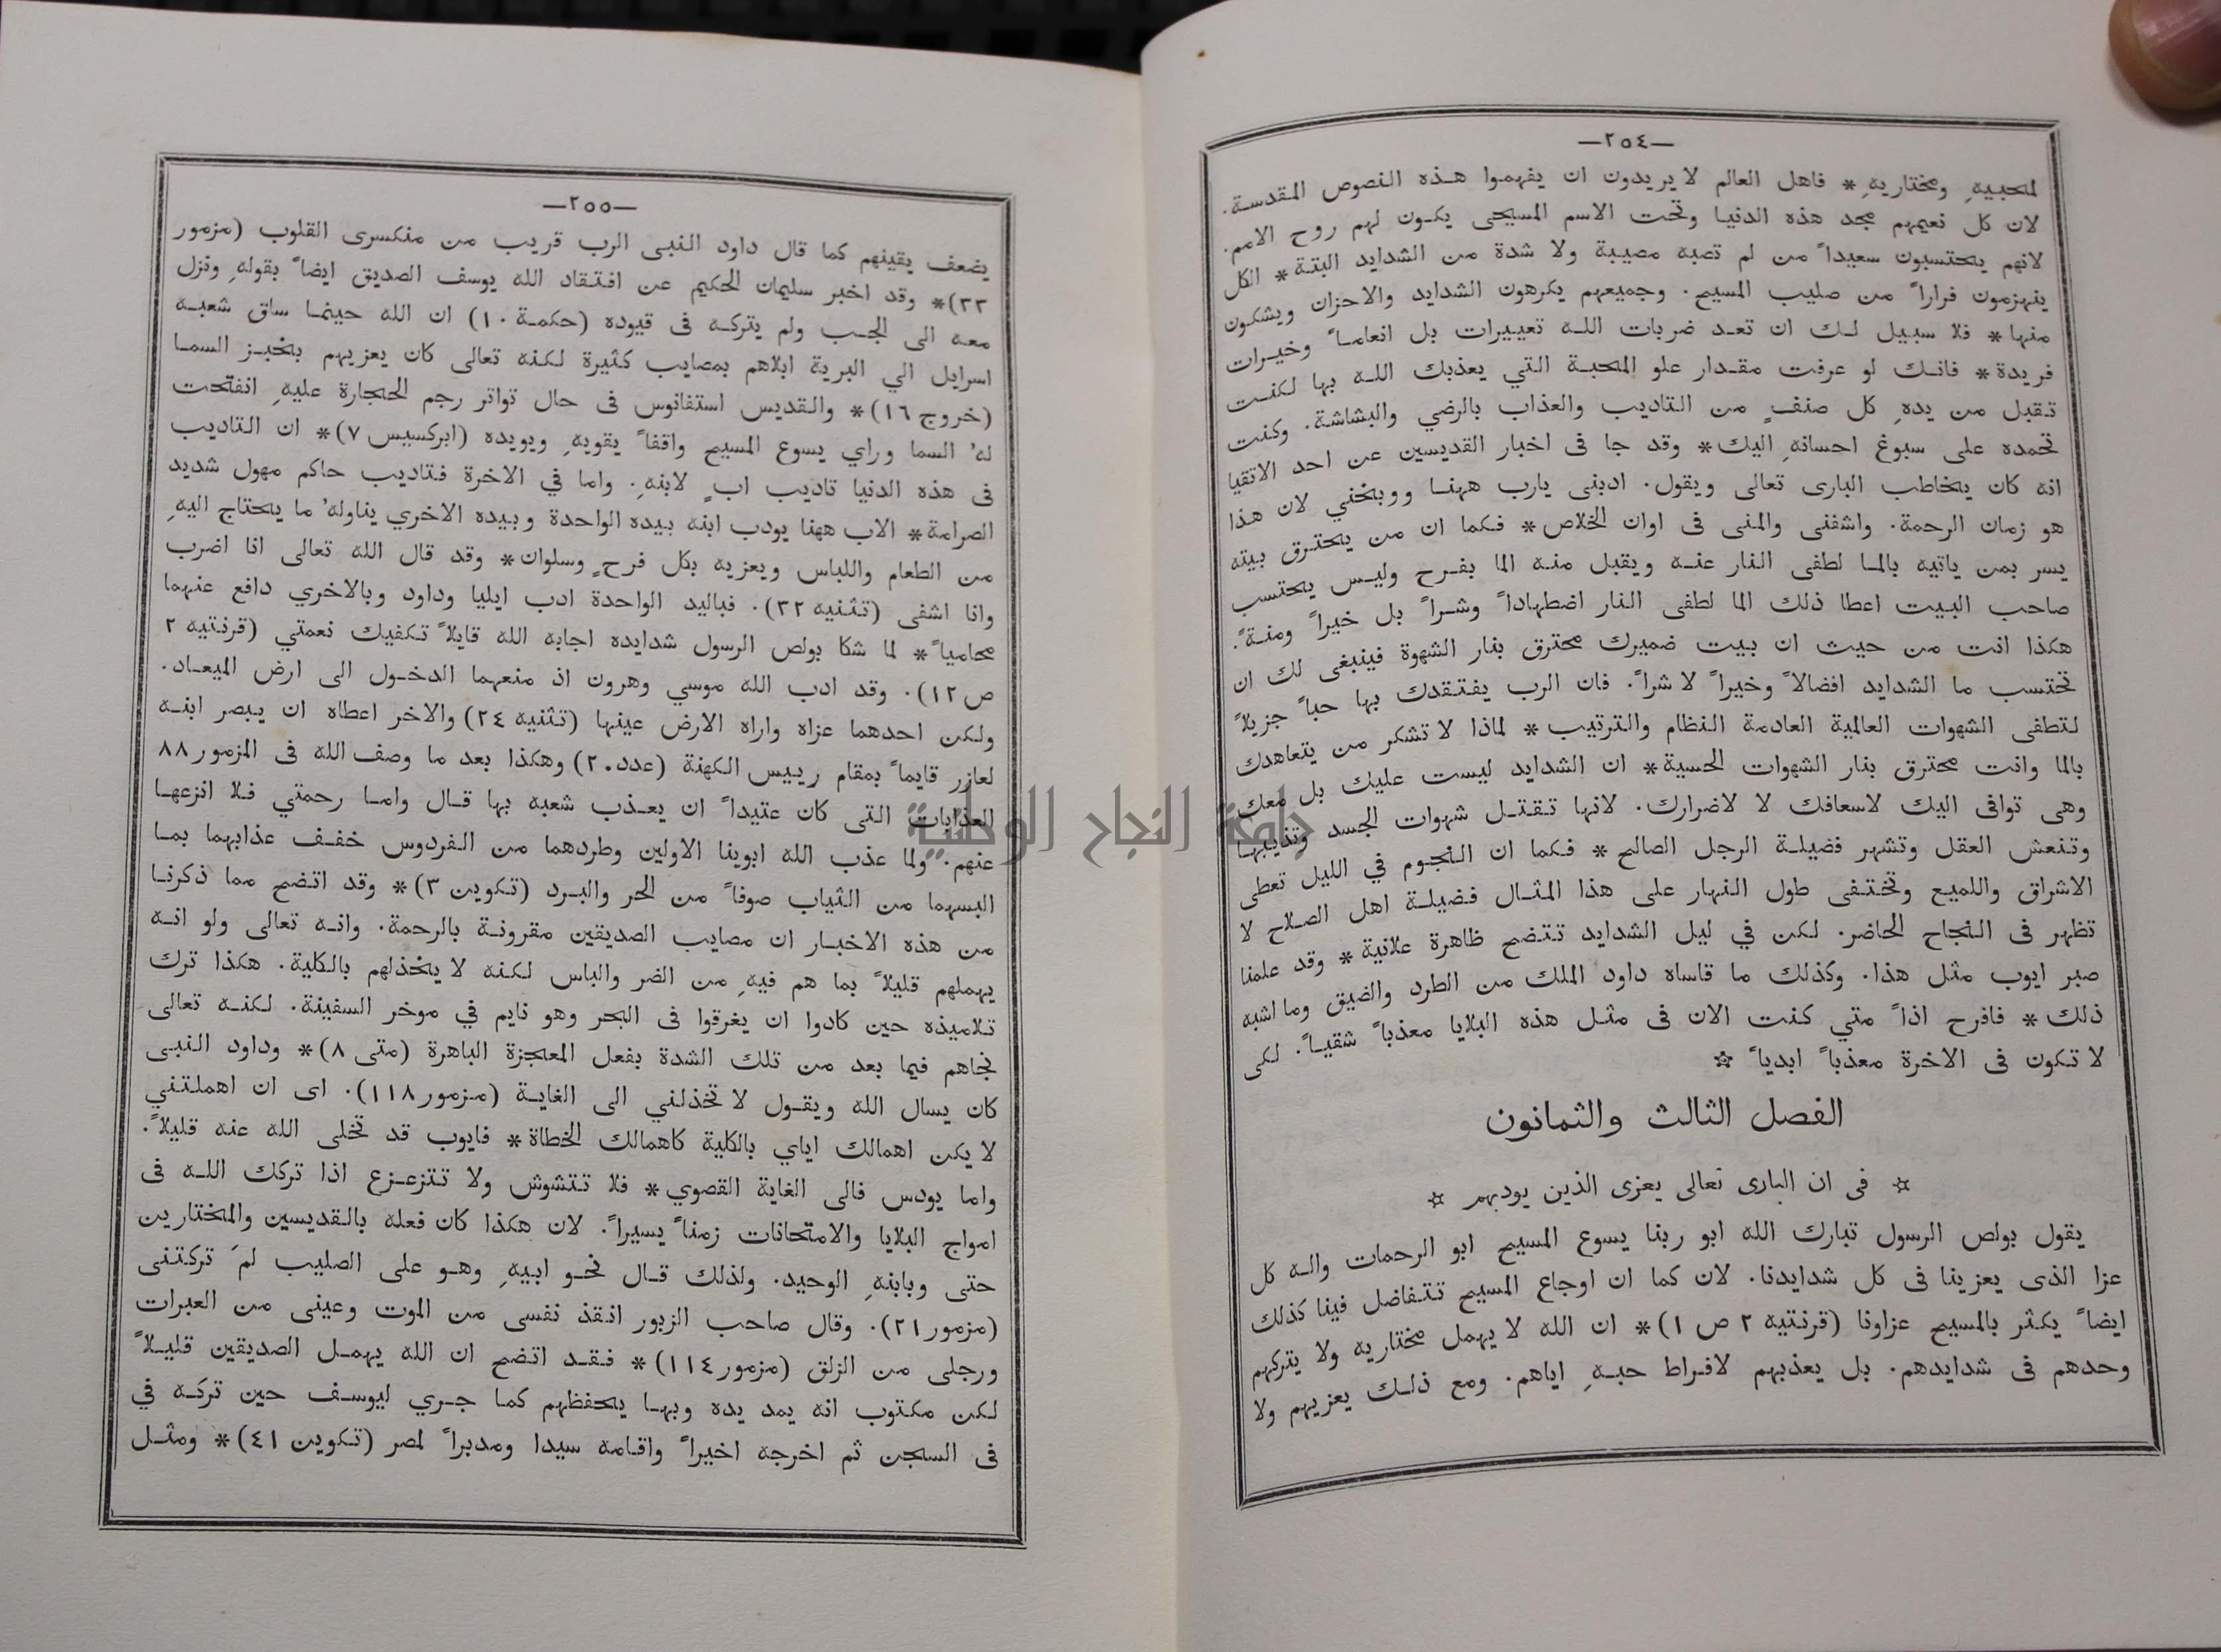 —٢٥٤—
لمحبيهِ ومختاريهِ* فاهل العالم لا يريدون ان يفهموا هذه النصوص المقدسة.
لان كل نعيمهم مجد هذه الدنيا وتحت الاسم المسيحى يكون لهم روح الامم.
لانهم يحتسبون سعيداً من لم تصبه مصيبة ولا شدة من الشدايد البتة* الكل
ينهزمون فراراً من صليب المسيح. وجميعهم يكرهون الشدايد والاحزان ويشكون
منها* فلا سبيل لك ان تعد ضربات الله تعييرات بل انعاماً وخيرات
فريدة* فانك لو عرفت مقدار علو المحبة التي يعذبك الله بها لكنت
تقبل من يدهِ كل صنفٍ من التاديب والعذاب بالرضي والبشاشة. وكنت
تحمده على سبوغ احسانهِ اليك* وقد جا فى اخبار القديسين عن احد الاتقيا
انه كان يخاطب البارى تعالى ويقول. ادبنى يارب ههنا ووبخني لان هذا
هو زمان الرحمة. واشفنى والمنى فى اوان الخلاص* فكما ان من يحترق بيته
يسر بمن ياتيه بالما لطفى النار عنه ويقبل منه الما بفرح وليس يحتسب
صاحب البيت اعطا ذلك الما لطفى النار اضطهاداً وشراً بل خيراً ومنةً.
هكذا انت من حيث ان بيت ضميرك محترق بنار الشهوة فينبغى لك ان
تحتسب ما الشدايد افضالاً وخيراً لا شراً. فان الرب يفتقدك بها حباً جزيلاً
لتطفى الشهوات العالمية العادمة النظام والترتيب* لماذا لا تشكر من يتعاهدك
بالما وانت محترق بنار الشهوات الحسية* ان الشدايد ليست عليك بل معك
وهى توافى اليك لاسعافك لا لاضرارك. لانها تقتل شهوات الجسد وتذيبها
وتنعش العقل وتشهر فضيلة الرجل الصالح* فكما ان النجوم في الليل تعطى
الاشراق واللميع وتختفى طول النهار على هذا المثال فضيلة اهل الصلاح لا
تظهر فى النجاح الحاضر. لكن في ليل الشدايد تتضح ظاهرة علانية* وقد علمنا
صبر ايوب مثل هذا. وكذلك ما قاساه داود الملك من الطرد والضيق وما اشبه
ذلك* فافرح اذاً متي كنت الان فى مثل هذه البلايا معذباً شقياً. لكى
لا تكون فى الاخرة معذباً ابدياً ☆
الفصل الثالث والثمانون
☆ فى ان البارى تعالى يعزى الذين يودبهم ☆
يقول بولص الرسول تبارك الله ابو ربنا يسوع المسيح ابو الرحمات واله كل
عزا الذى يعزينا فى كل شدايدنا. لان كما ان اوجاع المسيح تتفاضل فينا كذلك
ايضاً يكثر بالمسيح عزاونا (قرنتيه ٢ ص ١)* ان الله لا يهمل مختاريه ولا يتركهم
وحدهم فى شدايدهم. بل يعذبهم لافراط حبهِ اياهم. ومع ذلك يعزيهم ولا
—٢٥٥—
يضعف يقينهم كما قال داود النبى الرب قريب من منكسرى القلوب (مزمور
٣٣)* وقد اخبر سليمان الحكيم عن افتقاد الله يوسف الصديق ايضاً بقولهِ ونزل
معه الى الجب ولم يتركه فى قيوده (حكمة ١٠) ان الله حيثما ساق شعبه
اسرايل الي البرية ابلاهم بمصايب كثيرة لكنه تعالى كان يعزيهم بخبز السما
(خروج ١٦)* والقديس استفانوس فى حال تواتر رجم الحجارة عليهِ انفتحت
له' السما وراي يسوع المسيح واقفاً يقويهِ ويويده (ابركسيس ٧)* ان التاديب
فى هذه الدنيا تاديب ابٍ لابنهِ. واما في الاخرة فتاديب حاكم مهول شديد
الصرامة* الاب ههنا يودب ابنه بيده الواحدة وبيده الاخري يناوله' ما يحتاج اليهِ
من الطعام واللباس ويعزيه بكل فرحٍ وسلوان* وقد قال الله تعالى انا اضرب
وانا اشفى (تثنيه ٣٢). فباليد الواحدة ادب ايليا وداود وبالاخري دافع عنهما
محامياً* لما شكا بولص الرسول شدايده اجابه الله قايلاً تكفيك نعمتي (قرنتيه ٢
ص ١٢). وقد ادب الله موسي وهرون اذ منعهما الدخول الى ارض الميعاد.
ولكن احدهما عزاه واراه الارض عينها (تثنيه ٢٤) والاخر اعطاه ان يبصر ابنه
لعازر قايماً بمقام رييس الكهنة (عدد ٢٠) وهكذا بعد ما وصف الله فى المزمور ٨٨
العذابات التى كان عتيداً ان يعذب شعبه بها قال واما رحمتي فلا انزعها
عنهم. ولما عذب الله ابوينا الاولين وطردهما من الفردوس خفف عذابهما بما
البسهما من الثياب صوفاً من الحر والبرد (تكوين ٣)* وقد اتضح مما ذكرنا
من هذه الاخبار ان مصايب الصديقين مقرونة بالرحمة. وانه تعالى ولو انه
يهملهم قليلاً بما هم فيهِ من الضر والباس لكنه لا يخذلهم بالكلية. هكذا ترك
تلاميذه حين كادوا ان يغرقوا فى البحر وهو نايم في موخر السفينة. لكنه تعالى
نجاهم فيما بعد من تلك الشدة بفعل المعجزة الباهرة (متى ٨)* وداود النبى
كان يسال الله ويقول لا تخذلني الى الغاية (مزمور ١١٨). اى ان اهملتني
لا يكن اهمالك اياي بالكلية كاهمالك الخطاة* فايوب قد تخلى الله عنه قليلاً.
واما يودس فالى الغاية القصوي* فلا تتشوش ولا تتزعزع اذا تركك الله فى
امواج البلايا والامتحانات زمناً يسيراً. لان هكذا كان فعله بالقديسين والمختارين
حتى وبابنهِ الوحيد. ولذلك قال نحو ابيهِ وهو على الصليب لمَ تركتنى
(مزمور ٢١). وقال صاحب الزبور انقذ نفسى من الموت وعينى من العبرات
ورجلى من الزلق (مزمور ١١٤)* فقد اتضح ان الله يهمل الصديقين قليلاً
لكن مكتوب انه يمد يده وبها يحفظهم كما جري ليوسف حين تركه في
فى السجن ثم اخرجه اخيراً واقامه سيدا ومدبراً لمصر (تكوين ٤١)* ومثل
جامعة النجاح الوطنية